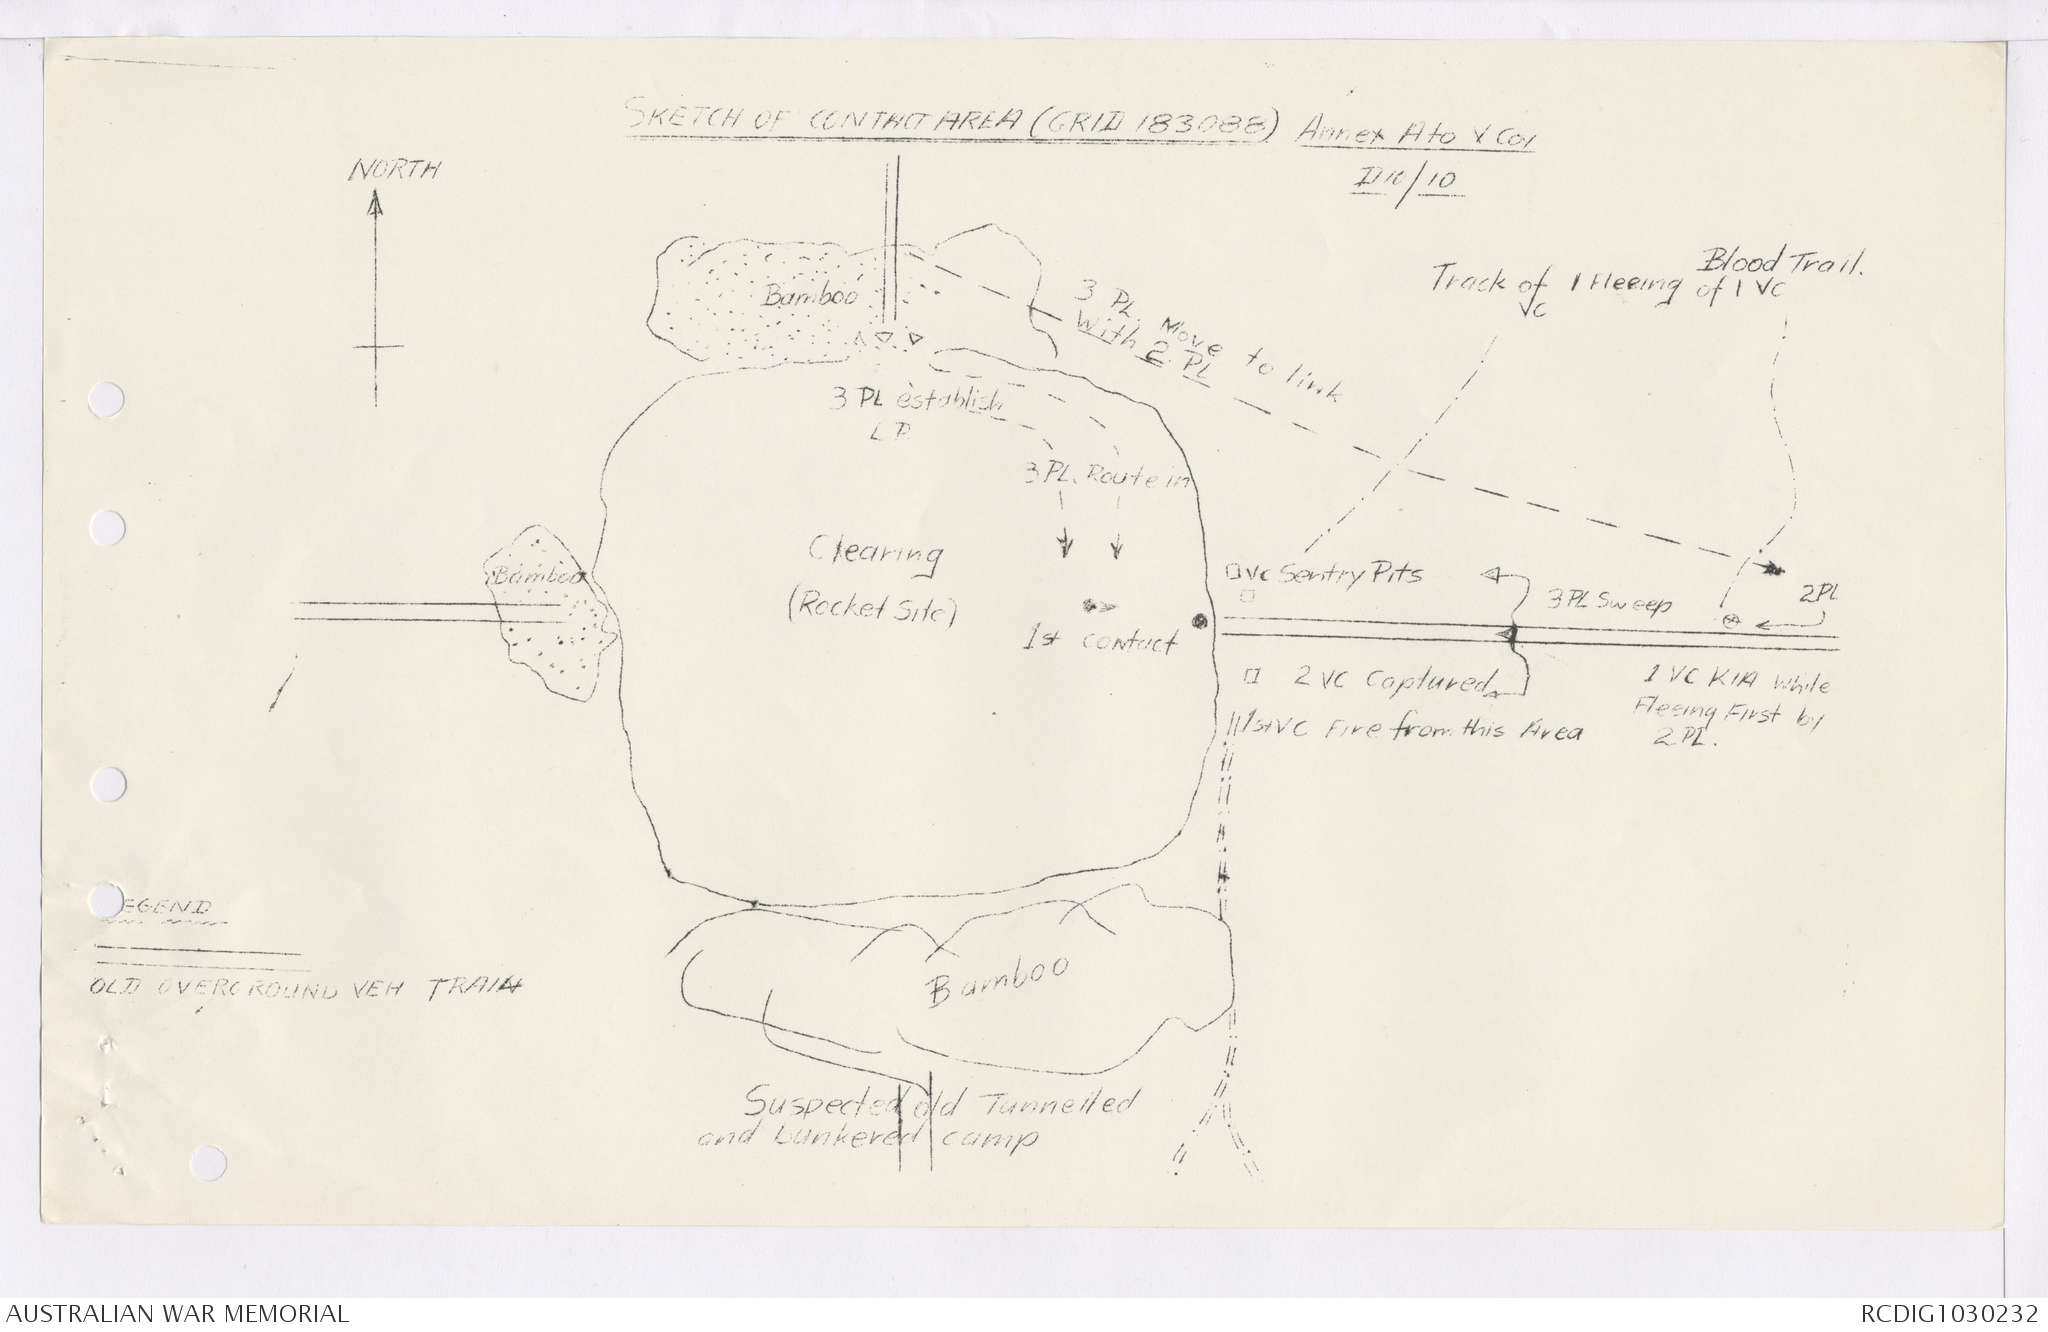 SKETCH OF CONTACT AREA (GRID 183088) Annex A to V Coy
/10
NORTH
Blood Trail.
of 1 VC
Track of 1 Fleeing
VC
Bamboo
3 PL. Move to link
With 2. PL
3 PL establish
L P
3 PL. Route in
Clearing
(Rocket Site)
Bamboo
VC Sentry Pits
3 PL Sweep
2 PL
1st contact
2 VC Captured
1 VC KIA While
Fleeing First by
2 PL.
1st VC Fire from this Area
LEGEND
OLD OVERGROUND VEH TRAIN
Bamboo
Suspected old Tunnelled
and bunkered camp
AUSTRALIAN WAR MEMORIAL
RCDIG1030232